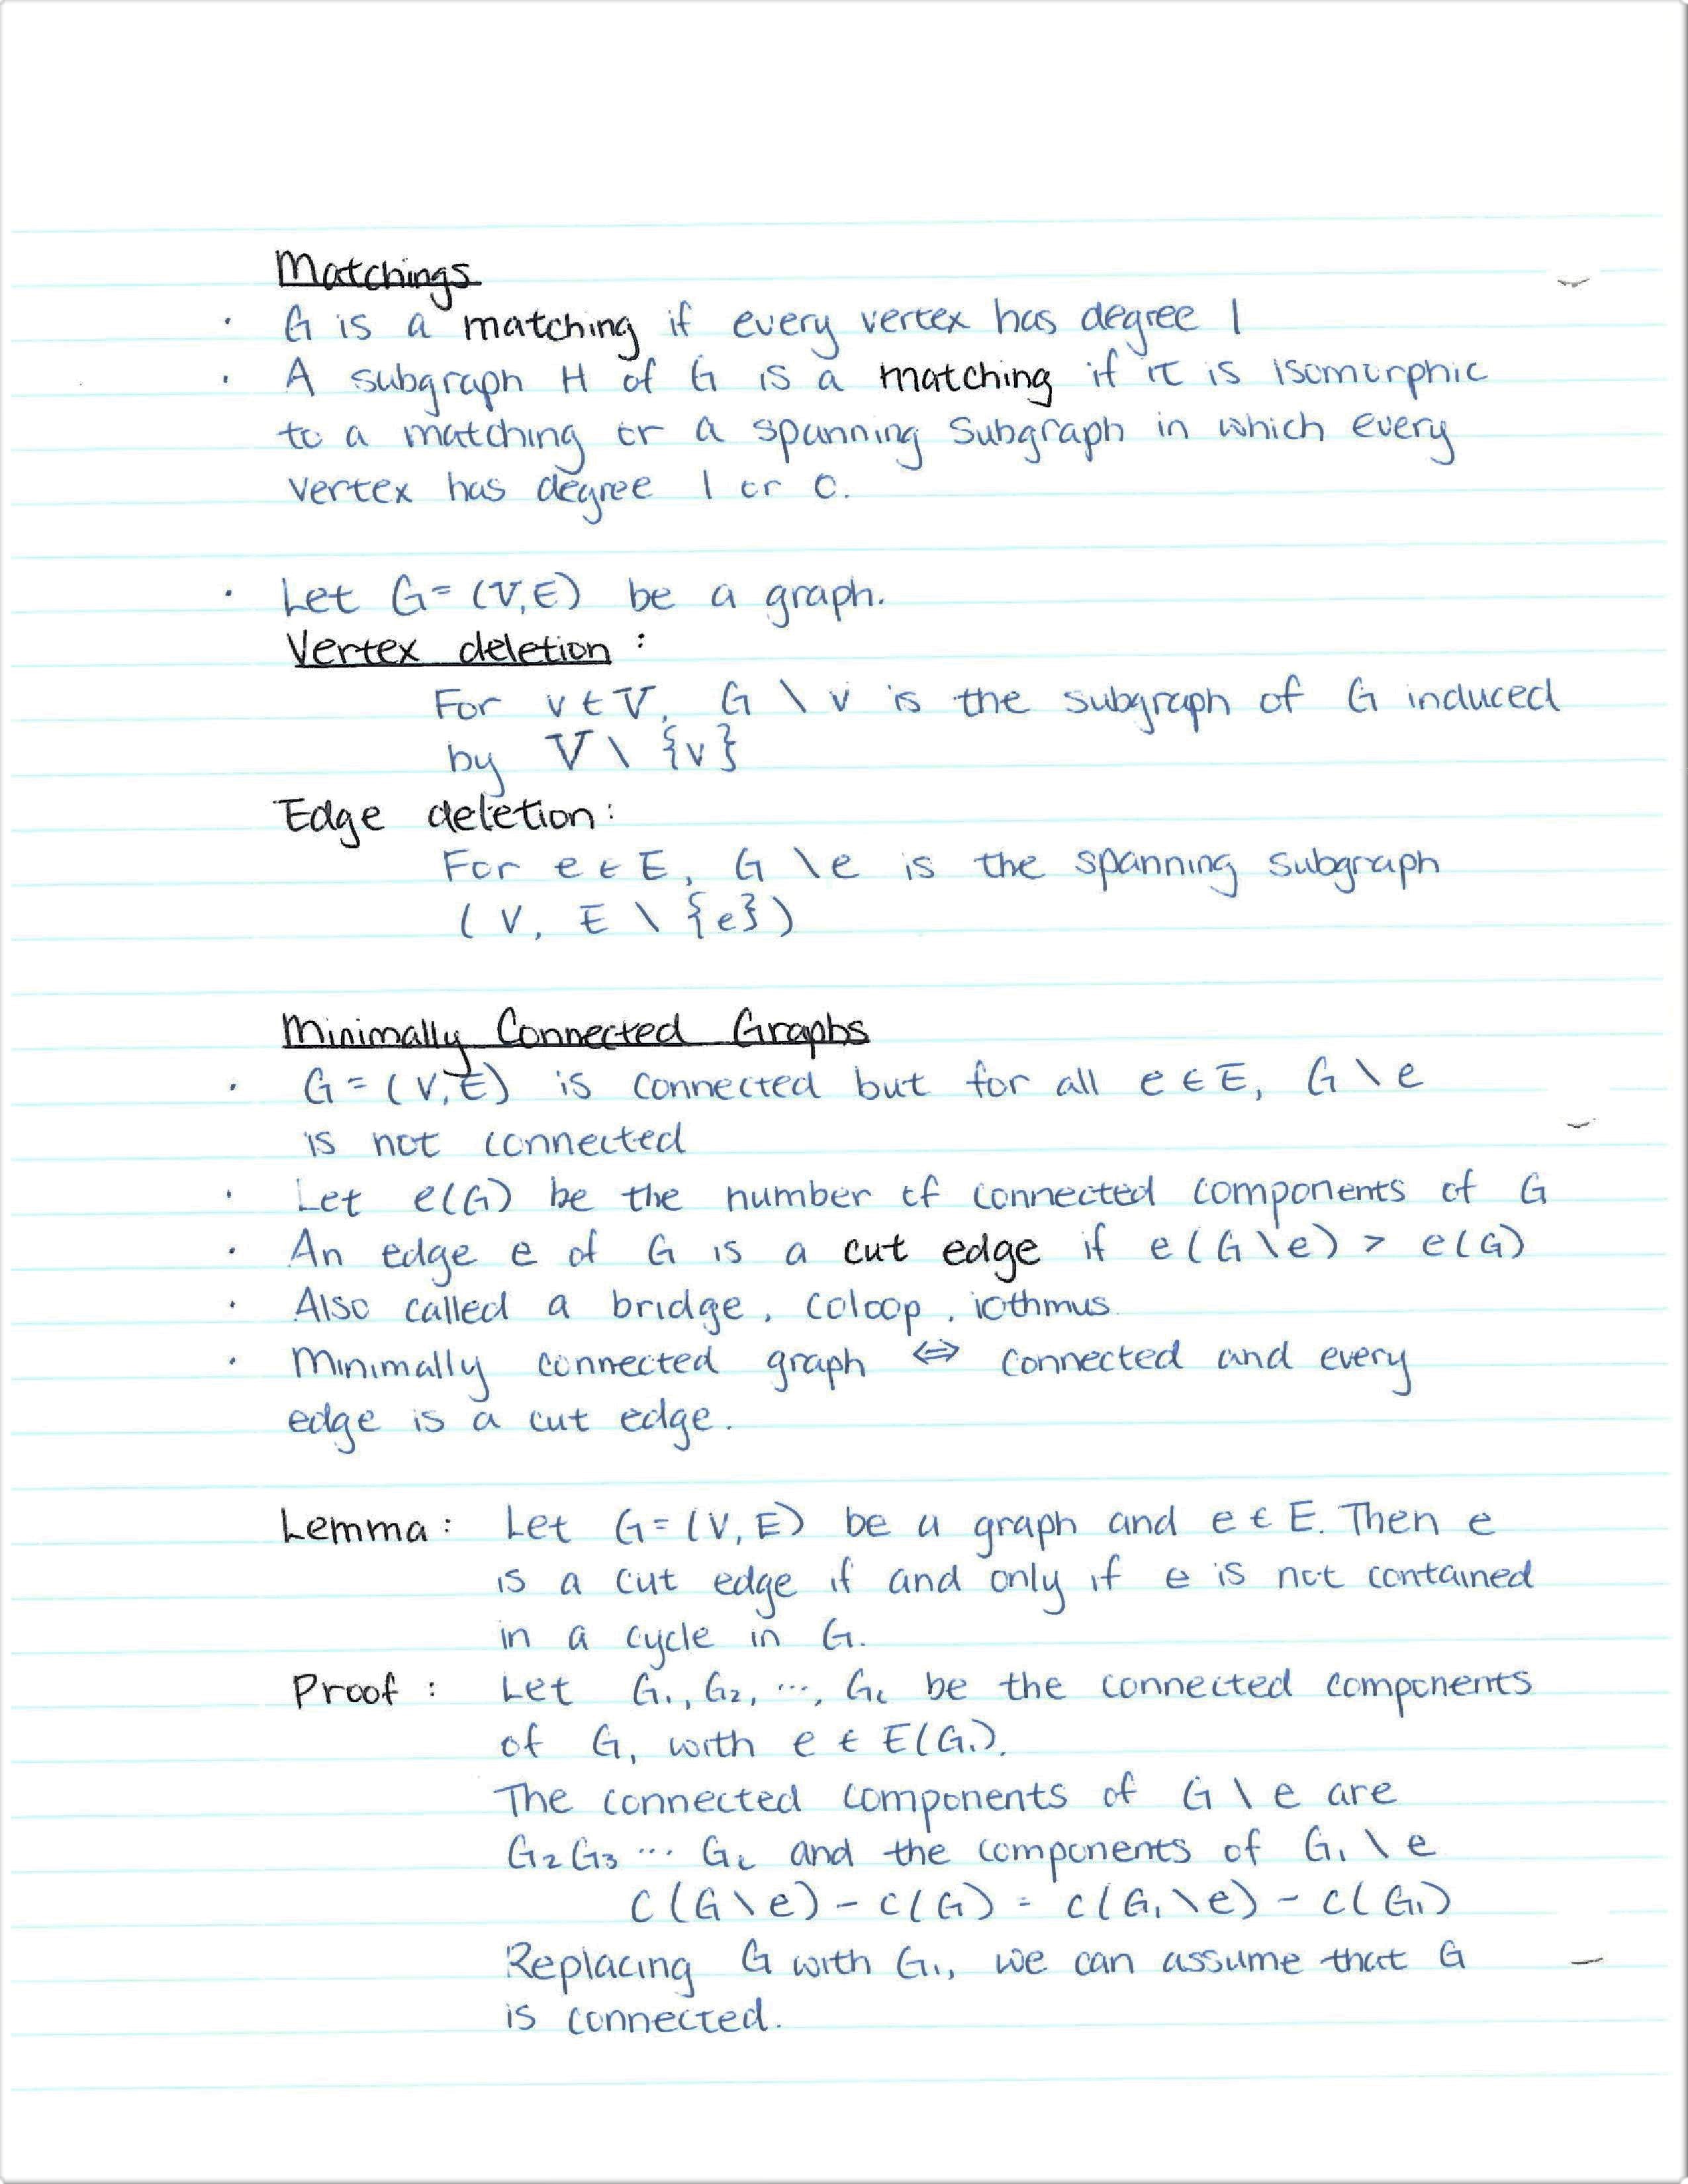 Matchings
· G is a matching if every vertex has degree 1
· A subgraph H of G is a matching if it is isomorphic
to a matching or a spanning subgraph in which every
vertex has degree 1 or 0.
· Let G = (V, E) be a graph.
Vertex deletion :
For v ∈ V, G \ v is the subgraph of G induced
by V \ {v}
Edge deletion:
For e ∈ E, G \ e is the spanning subgraph
(V, E \ {e})
Minimally Connected Graphs
· G = (V, E) is connected but for all e ∈ E, G \ e
is not connected
· Let e(G) be the number of connected components of G
· An edge e of G is a cut edge if e(G \ e) > e(G)
· Also called a bridge, coloop, iothmus.
· Minimally connected graph ⇔ connected and every
edge is a cut edge.
Lemma : Let G = (V, E) be a graph and e ∈ E. Then e
is a cut edge if and only if e is not contained
in a cycle in G.
Proof : Let G₁, G₂, ..., Gc be the connected components
of G, with e ∈ E(G₁).
The connected components of G \ e are
G₂ G₃ ... Gc and the components of G₁ \ e
c(G \ e) - c(G) = c(G₁ \ e) - c(G₁)
Replacing G with G₁, we can assume that G
is connected.